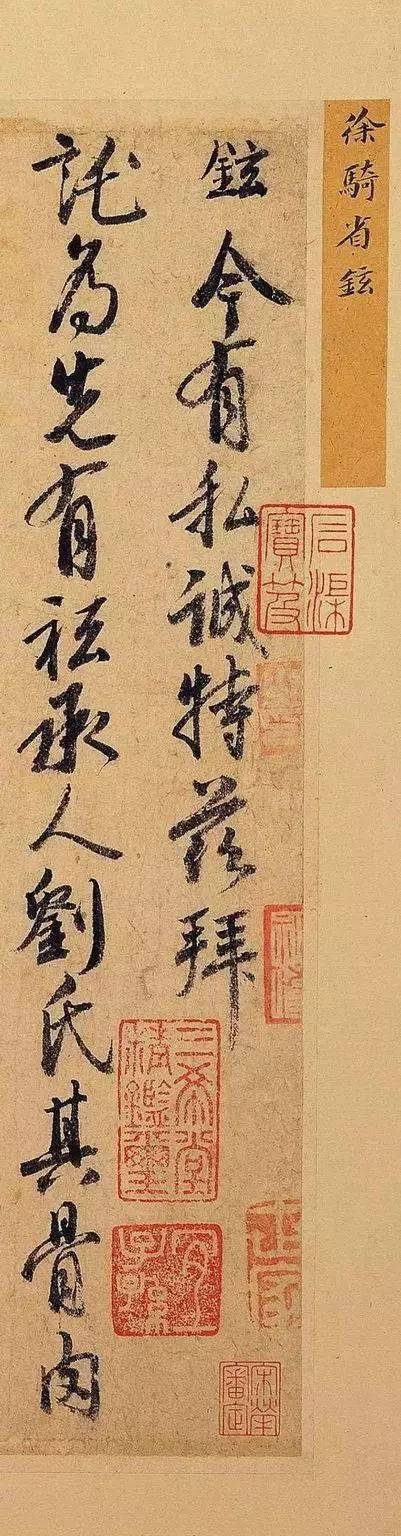 徐騎省鉉
鉉今有私誠特茲拜
託為先有祗承人劉氏其骨肉
石渠
寶笈
三希堂
精鑑璽
宜
子孫
宋犖
審定